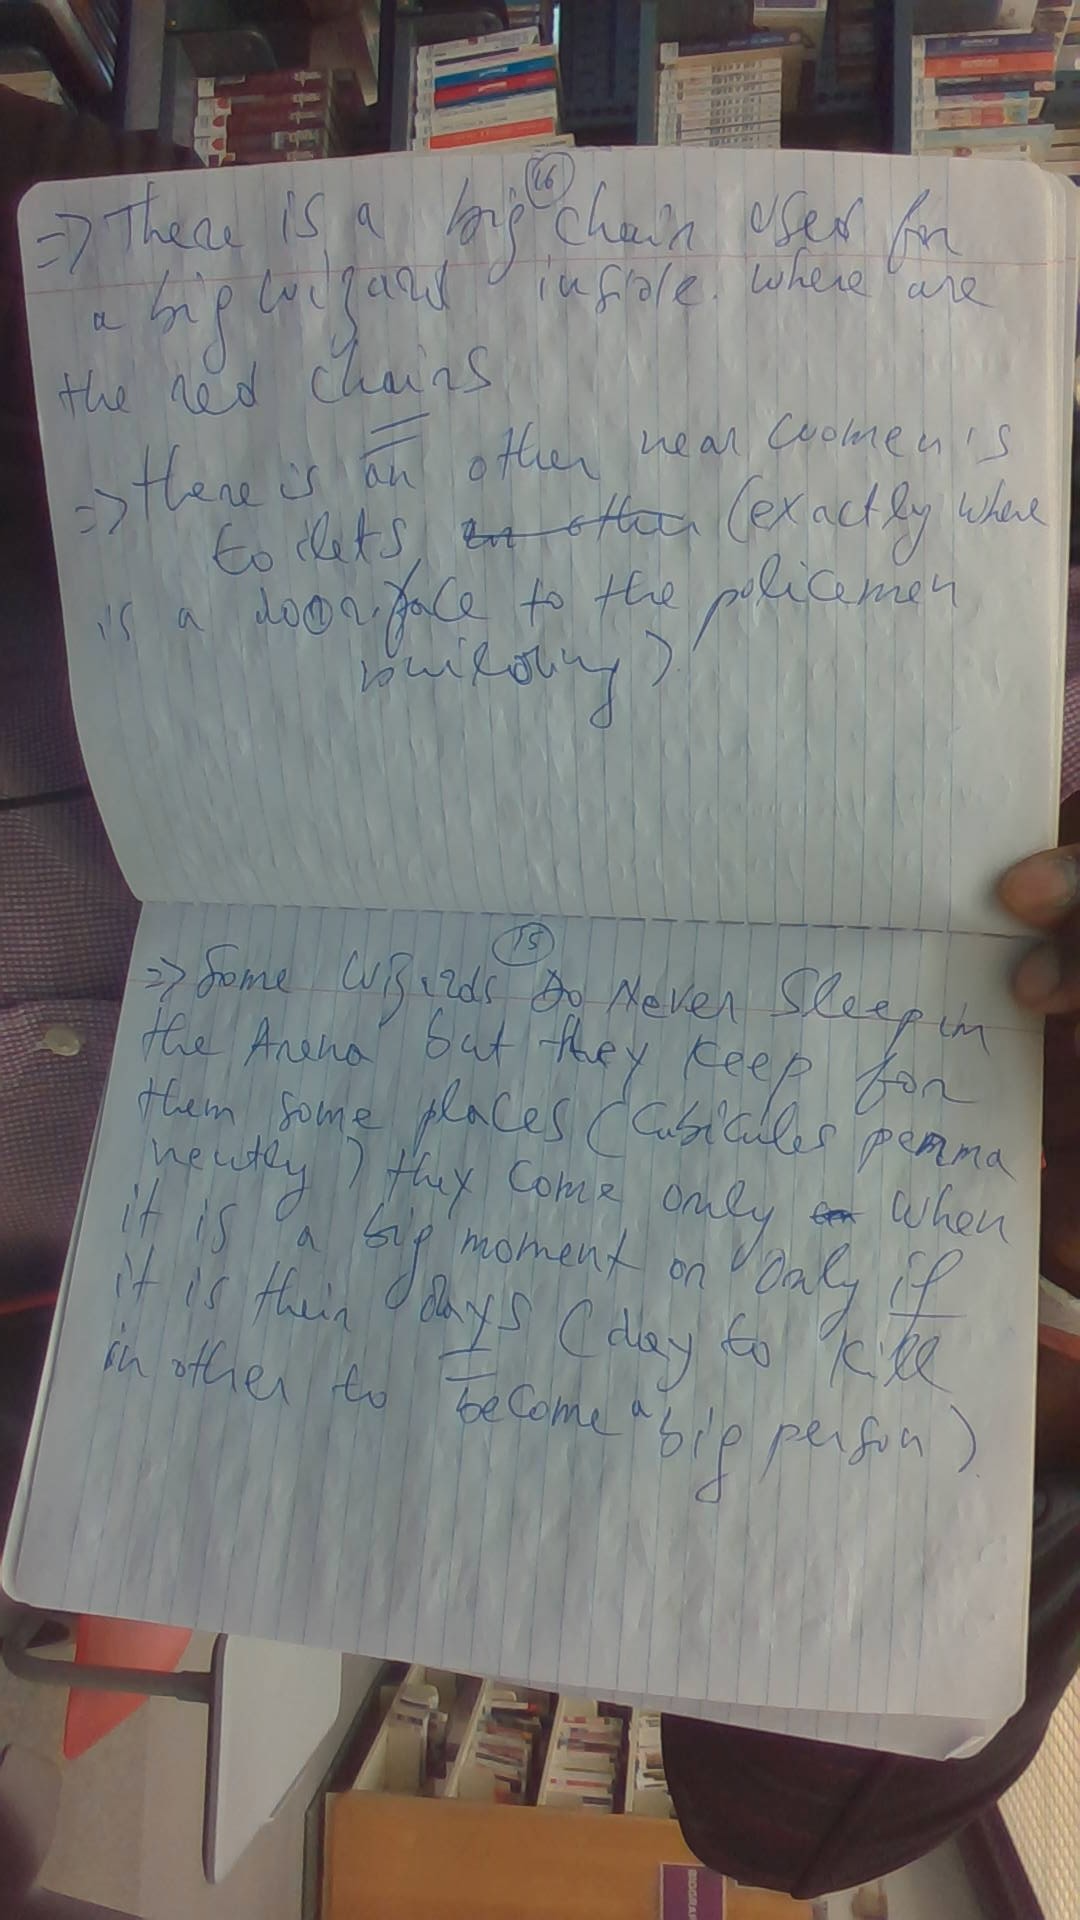 16
=> There is a big chair used for
a big wizard inside. where are
the red chairs
=> there is an other near women's
toilets in other (exactly where
is a door face to the policemen
building).
15
=> Some wizards Do Never Sleep in
the Arena but they keep for
them some places (Cubicules perma
nently) they come only when
it is a big moment or only if
it is their days (day to kill
in other to become a big person)
BIOGRAP